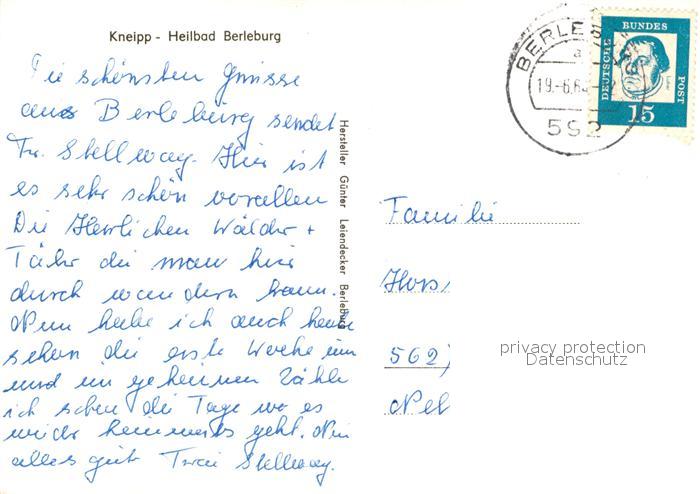 Kneipp - Heilbad Berleburg
Die schönsten Grüsse
aus Berleburg sendet
Fr. Stellway. Hier ist
es sehr schön vorallen
Die Herrlichen Wälder +
Tähr die man hir
durch wandern kann.
Nun habe ich auch heute
schon die erste Woche um
und im geheimen Zähle
ich schon die Tage wo es
wider heimwerts geht. Nun
alles gute Frau Stellway.
Hersteller Günter Leiendecker Berleburg
BERLEB
a
19.-6.6
592
DEUTSCHE BUNDES POST
15
Familie
Hors
562
Nel
privacy protection
Datenschutz